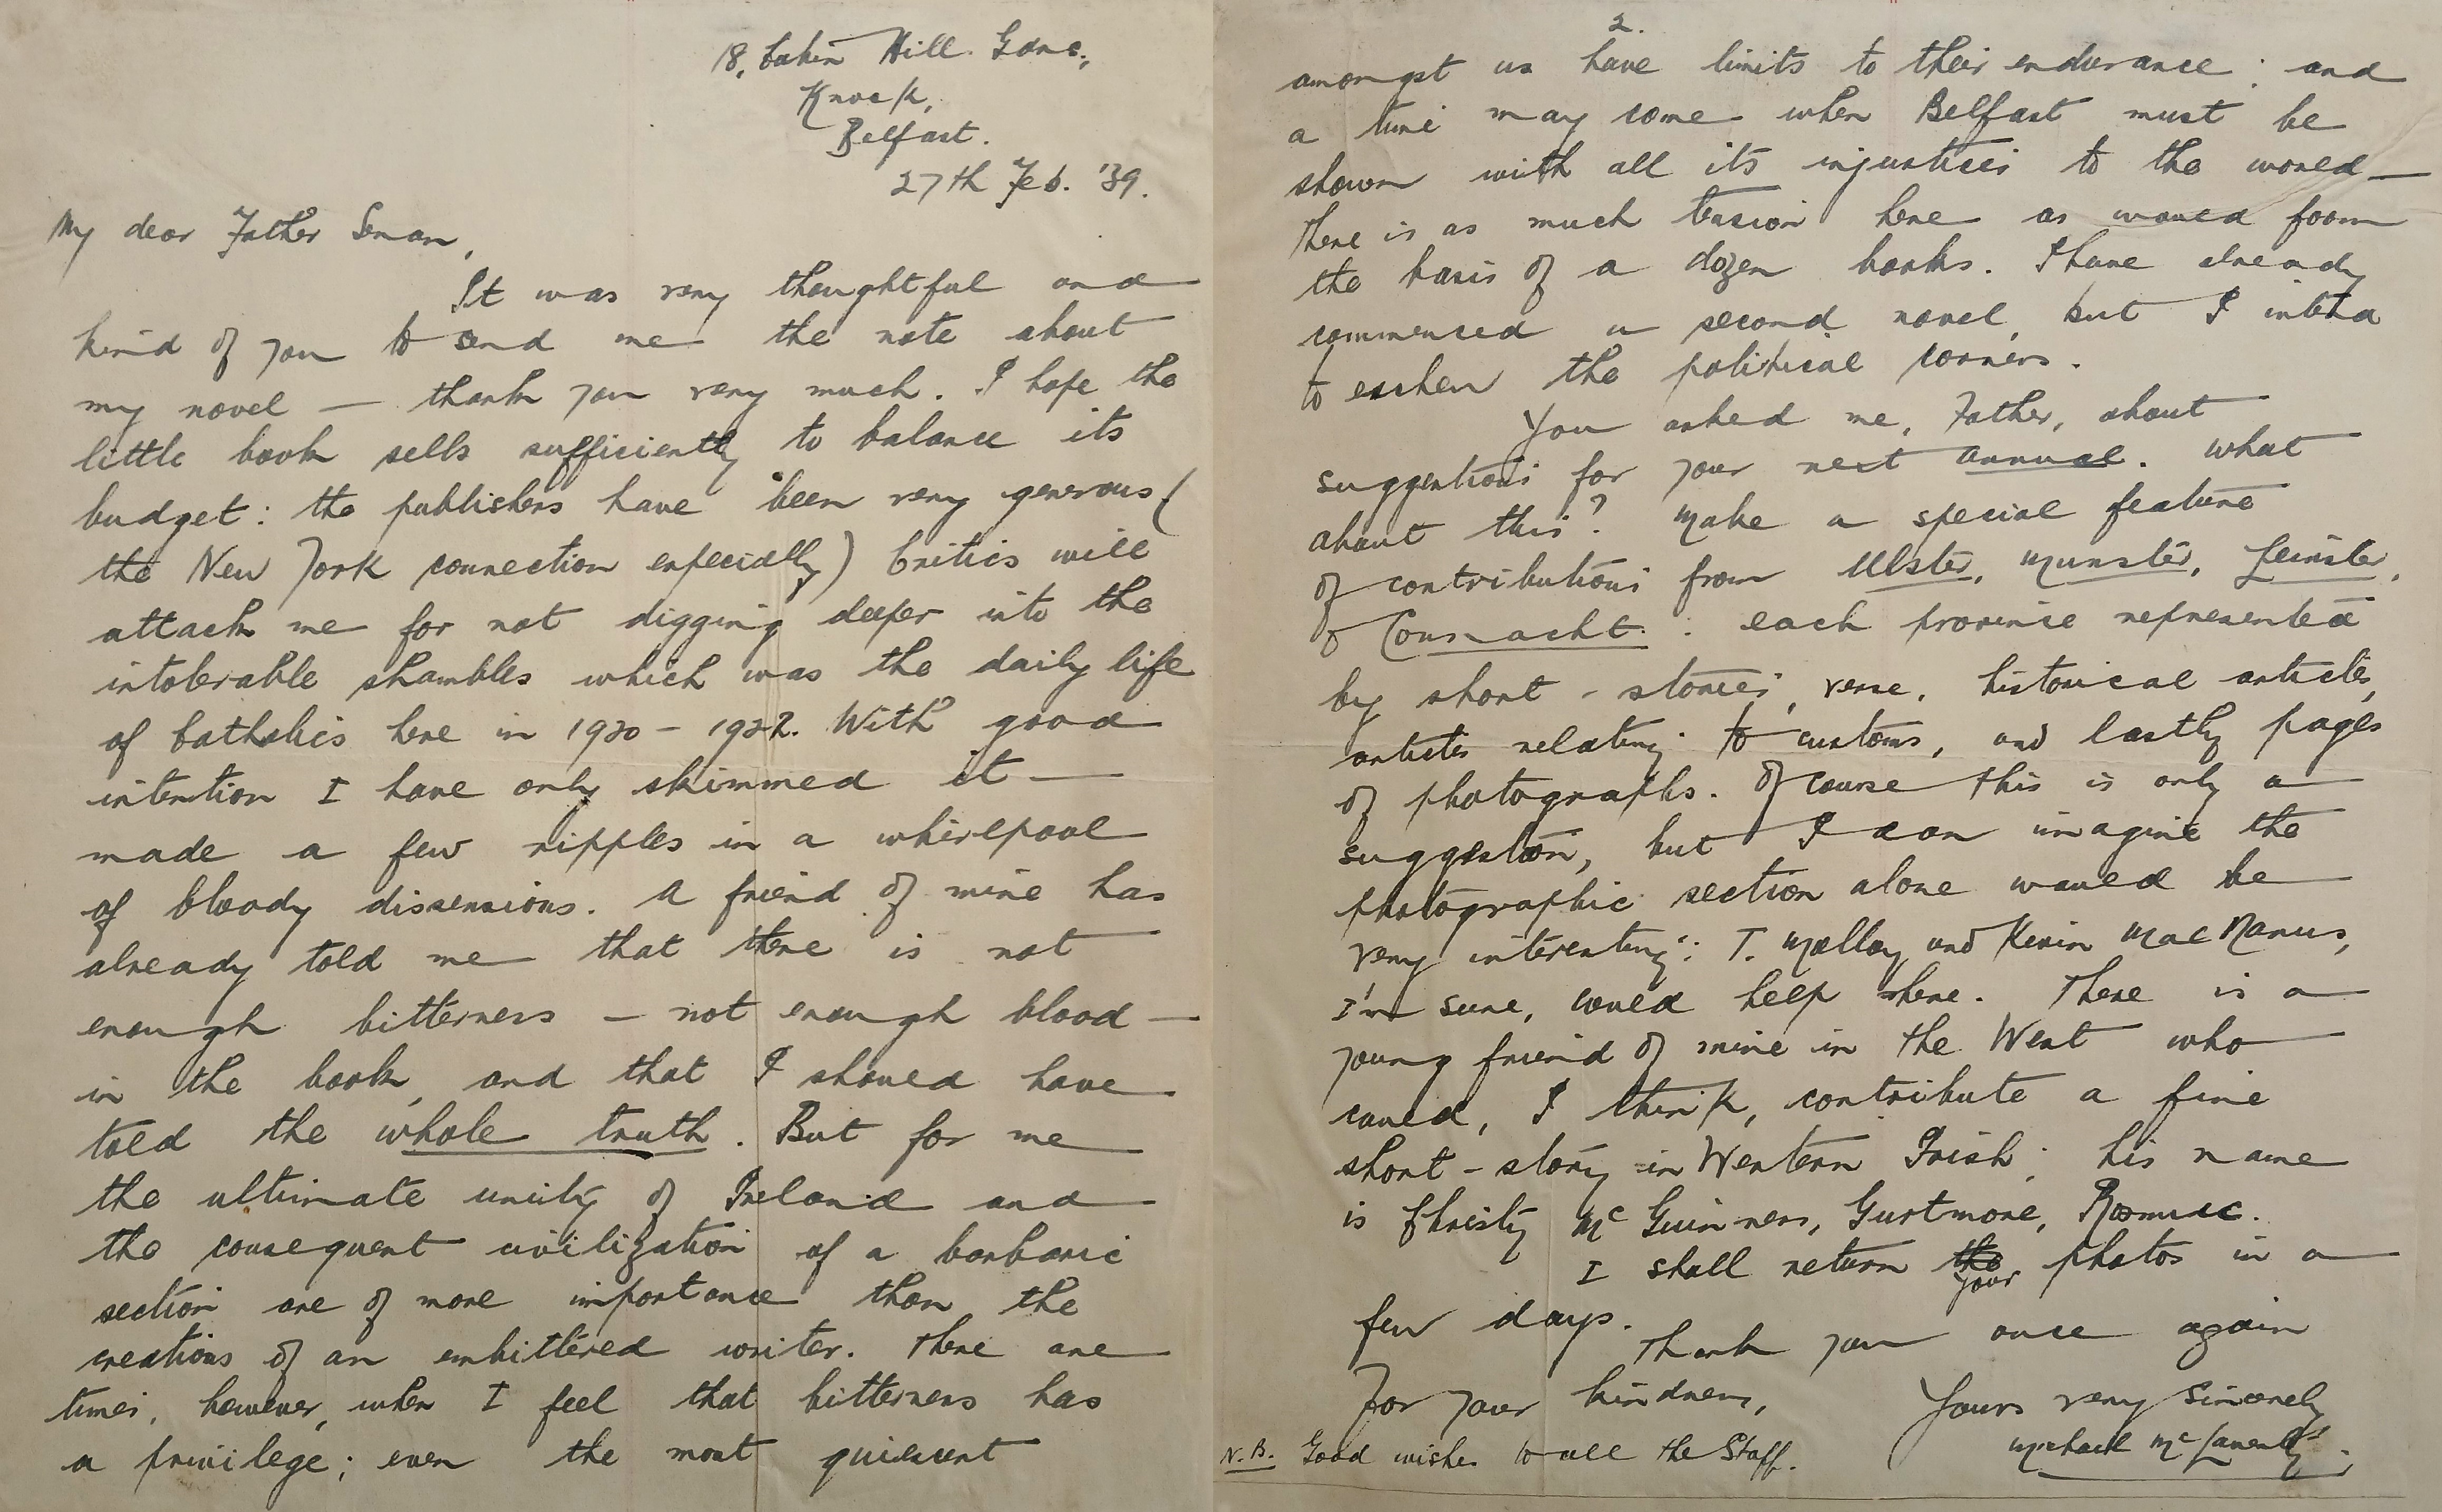 18, Cabin Hill Gdns.,
Knock,
Belfast.
27th Feb. '39.
My dear Father Senan,
It was very thoughtful and
kind of you to send me the note about
my novel — thank you very much. I hope the
little book sells sufficiently to balance its
budget: the publishers have been very generous (
the New York connection especially) Critics will
attack me for not digging deeper into the
intolerable shambles which was the daily life
of Catholics here in 1920 – 1922. With good
intention I have only skimmed it —
made a few ripples in a whirlpool
of bloody dissensions. A friend of mine has
already told me that there is not
enough bitterness – not enough blood –
in the book, and that I should have
told the whole truth. But for me
the ultimate unity of Ireland and
the consequent civilization of a barbaric
section are of more importance than the
creations of an embittered writer. There are
times, however, when I feel that bitterness has
a privilege; even the most quiescent
2.
amongst us have limits to their endurance; and
a time may come when Belfast must be
shown with all its injustices to the world —
There is as much tension here as would form
the basis of a dozen books. I have already
commenced a second novel, but I intend
to eschew the political corners.
You asked me, Father, about
suggestions for your next annual. What
about this? Make a special feature
of contributions from Ulster, Munster, Leinster,
& Connacht: each province represented
by short-stories, verse, historical articles,
articles relating to customs, and lastly pages
of photographs. Of course this is only a
suggestion, but I can imagine the
photographic section alone would be
very interesting: T. Molloy and Kevin MacManus,
I'm sure, would help here. There is a
young friend of mine in the West who
could, I think, contribute a fine
short-story in Western Irish; his name
is Christy McGuinness, Gurtmore, Rosmuc.
I shall return the your photos in a
few days.
Thank you once again
for your kindness,
Yours very sincerely
Michael McLaverty.
N.B. Good wishes to all the Staff.